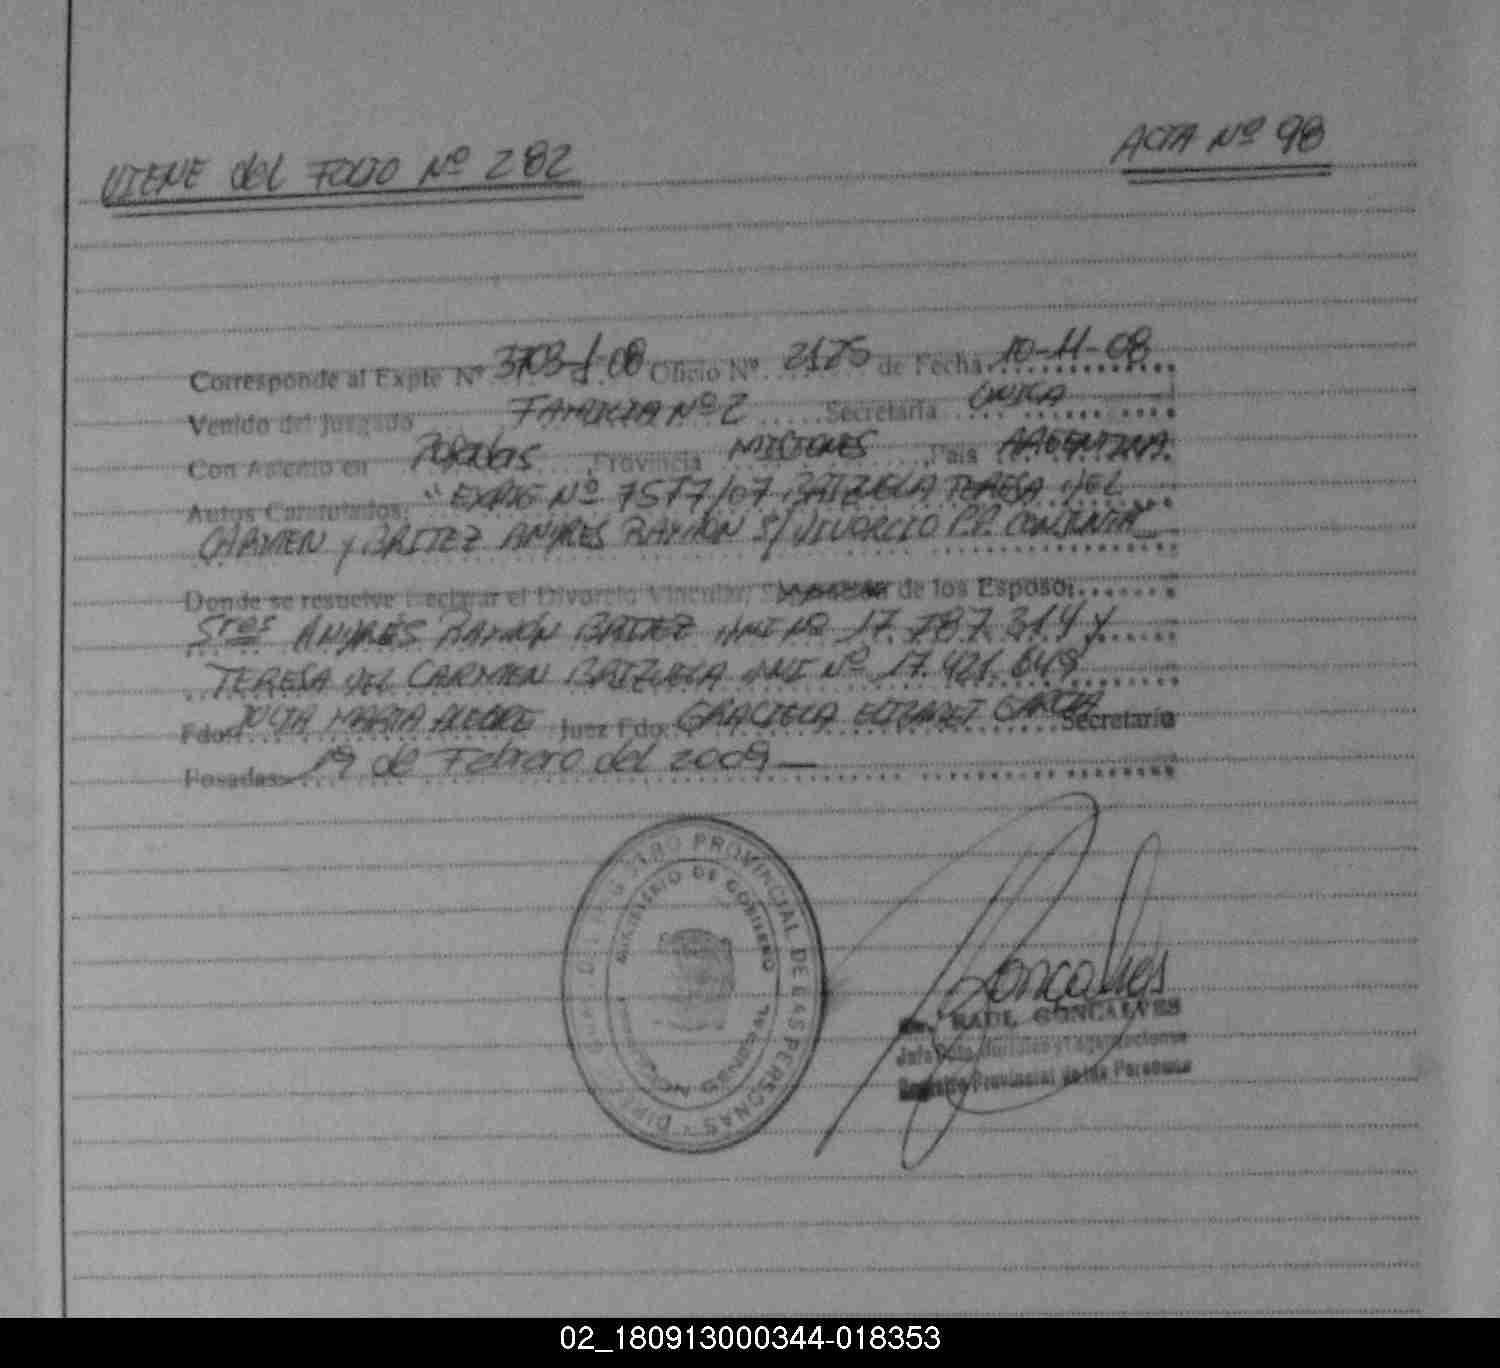 VIENE del FOLIO Nº 282
ACTA Nº 98
Corresponde al Expte Nº 3703-J-08 Oficio Nº 2125 de Fecha 10-11-08
Venido del Juzgado FAMILIA Nº 2 Secretaría ÚNICA
Con Asiento en POSADAS Provincia MISIONES País ARGENTINA
Autos Caratulados: "EXPTE Nº 7577/07 BAIZUELA TERESA DEL
CARMEN y BRITEZ ANDRES RAMON S/ DIVORCIO P.P. CONJUNTA
Donde se resuelve Declarar el Divorcio Vincular, de los Esposos
Sres ANDRÉS RAMÓN BRITEZ DNI Nº 17.787.314 y
TERESA DEL CARMEN BAIZUELA DNI Nº 17.421.649
Fdo. JULIA MARIA ALEGRE Juez Fdo. GRACIELA ELIZABET GARCIA Secretario
Posadas 19 de Febrero del 2009
REGISTRO PROVINCIAL DE LAS PERSONAS
MINISTERIO DE GOBIERNO
MISIONES
Goncalves
RAUL GONCALVES
Registro Provincial de las Personas
02_180913000344-018353